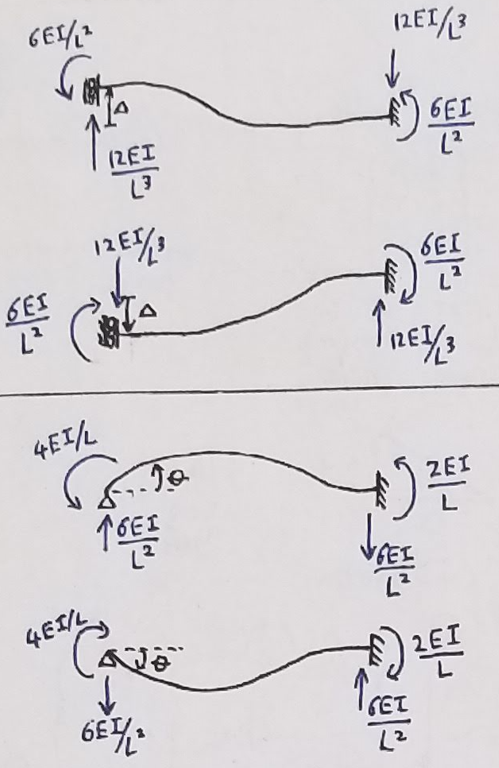 6EI/L²
12EI/L³
Δ
6EI/L²
12EI/L³
12EI/L³
6EI/L²
6EI/L²
Δ
12EI/L³
4EI/L
θ
2EI/L
6EI/L²
6EI/L²
4EI/L
θ
2EI/L
6EI/L²
6EI/L²